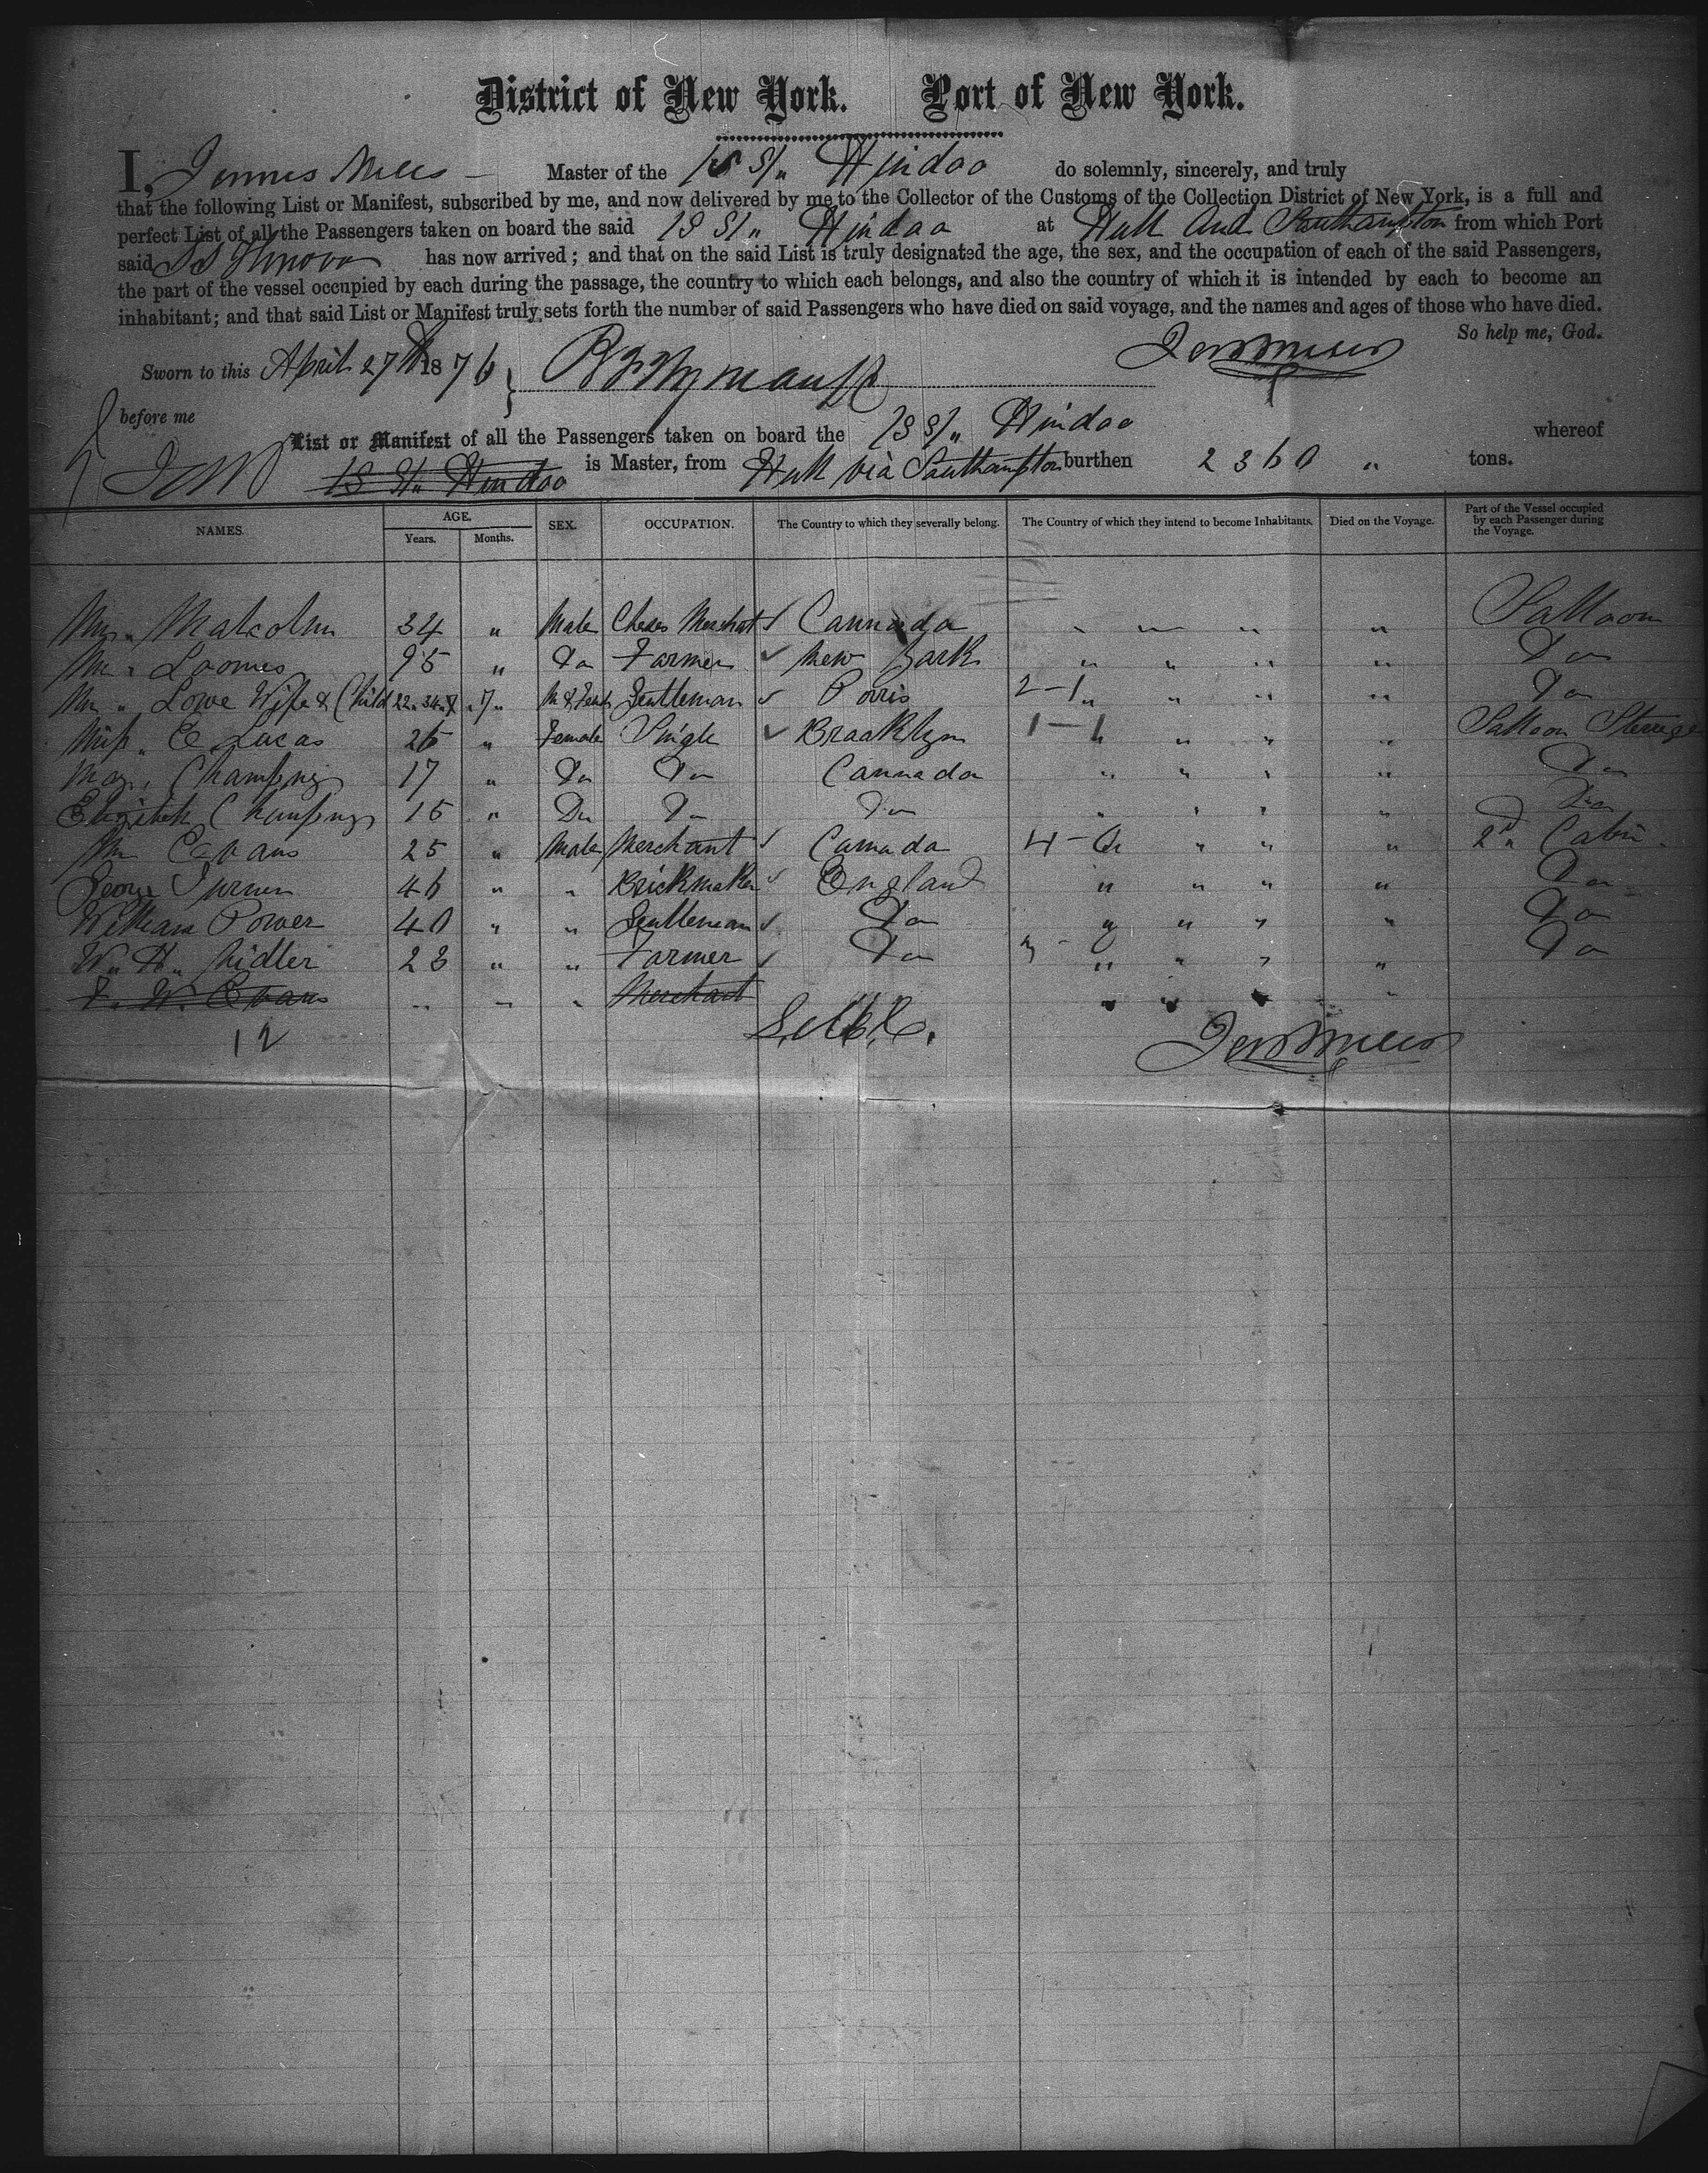 District of New York. Port of New York.
I, James Mills Master of the Hindoo do solemnly, sincerely, and truly
that the following List or Manifest, subscribed by me, and now delivered by me to the Collector of the Customs of the Collection District of New York, is a full and
perfect List of all the Passengers taken on board the said Hindoo at Hull and Southampton from which Port
said has now arrived; and that on the said List is truly designated the age, the sex, and the occupation of each of the said Passengers,
the part of the vessel occupied by each during the passage, the country to which each belongs, and also the country of which it is intended by each to become an
inhabitant; and that said List or Manifest truly sets forth the number of said Passengers who have died on said voyage, and the names and ages of those who have died.
So help me, God.
Sworn to this April 27th 1876
before me
List or Manifest of all the Passengers taken on board the Hindoo whereof
Hindoo is Master, from Hull via Southampton burthen 2360 „ tons.
NAMES. AGE. SEX. OCCUPATION. The Country to which they severally belong. The Country of which they intend to become Inhabitants. Died on the Voyage. Part of the Vessel occupied by each Passenger during the Voyage.
Years. Months.
Malcolm 34 „ Male Cannada „ „ „ „ Salloon
Loomis „ Do Farmer New York „ „ „ „ Do
Lowe Wife & Child 7 Gentleman „ „ „ Do
Miss. E Lucas 26 „ Female Single Brooklyn „ „ „ Salloon
17 „ Do Do Cannada „ „ „ „ Do
15 „ Do Do Do „ „ „ „ Do
Mr Evans 25 „ Male Merchant Canada „ „ „ 2nd Cabin
George Turner 46 „ „ Brickmaker England „ „ „ „ Do
William Power 40 „ „ Gentleman Do „ „ „ „ Do
W. H. 23 „ „ Farmer Do „ „ „ „ Do
W. Evans „ „ „ Merchant „ „ „ „
12